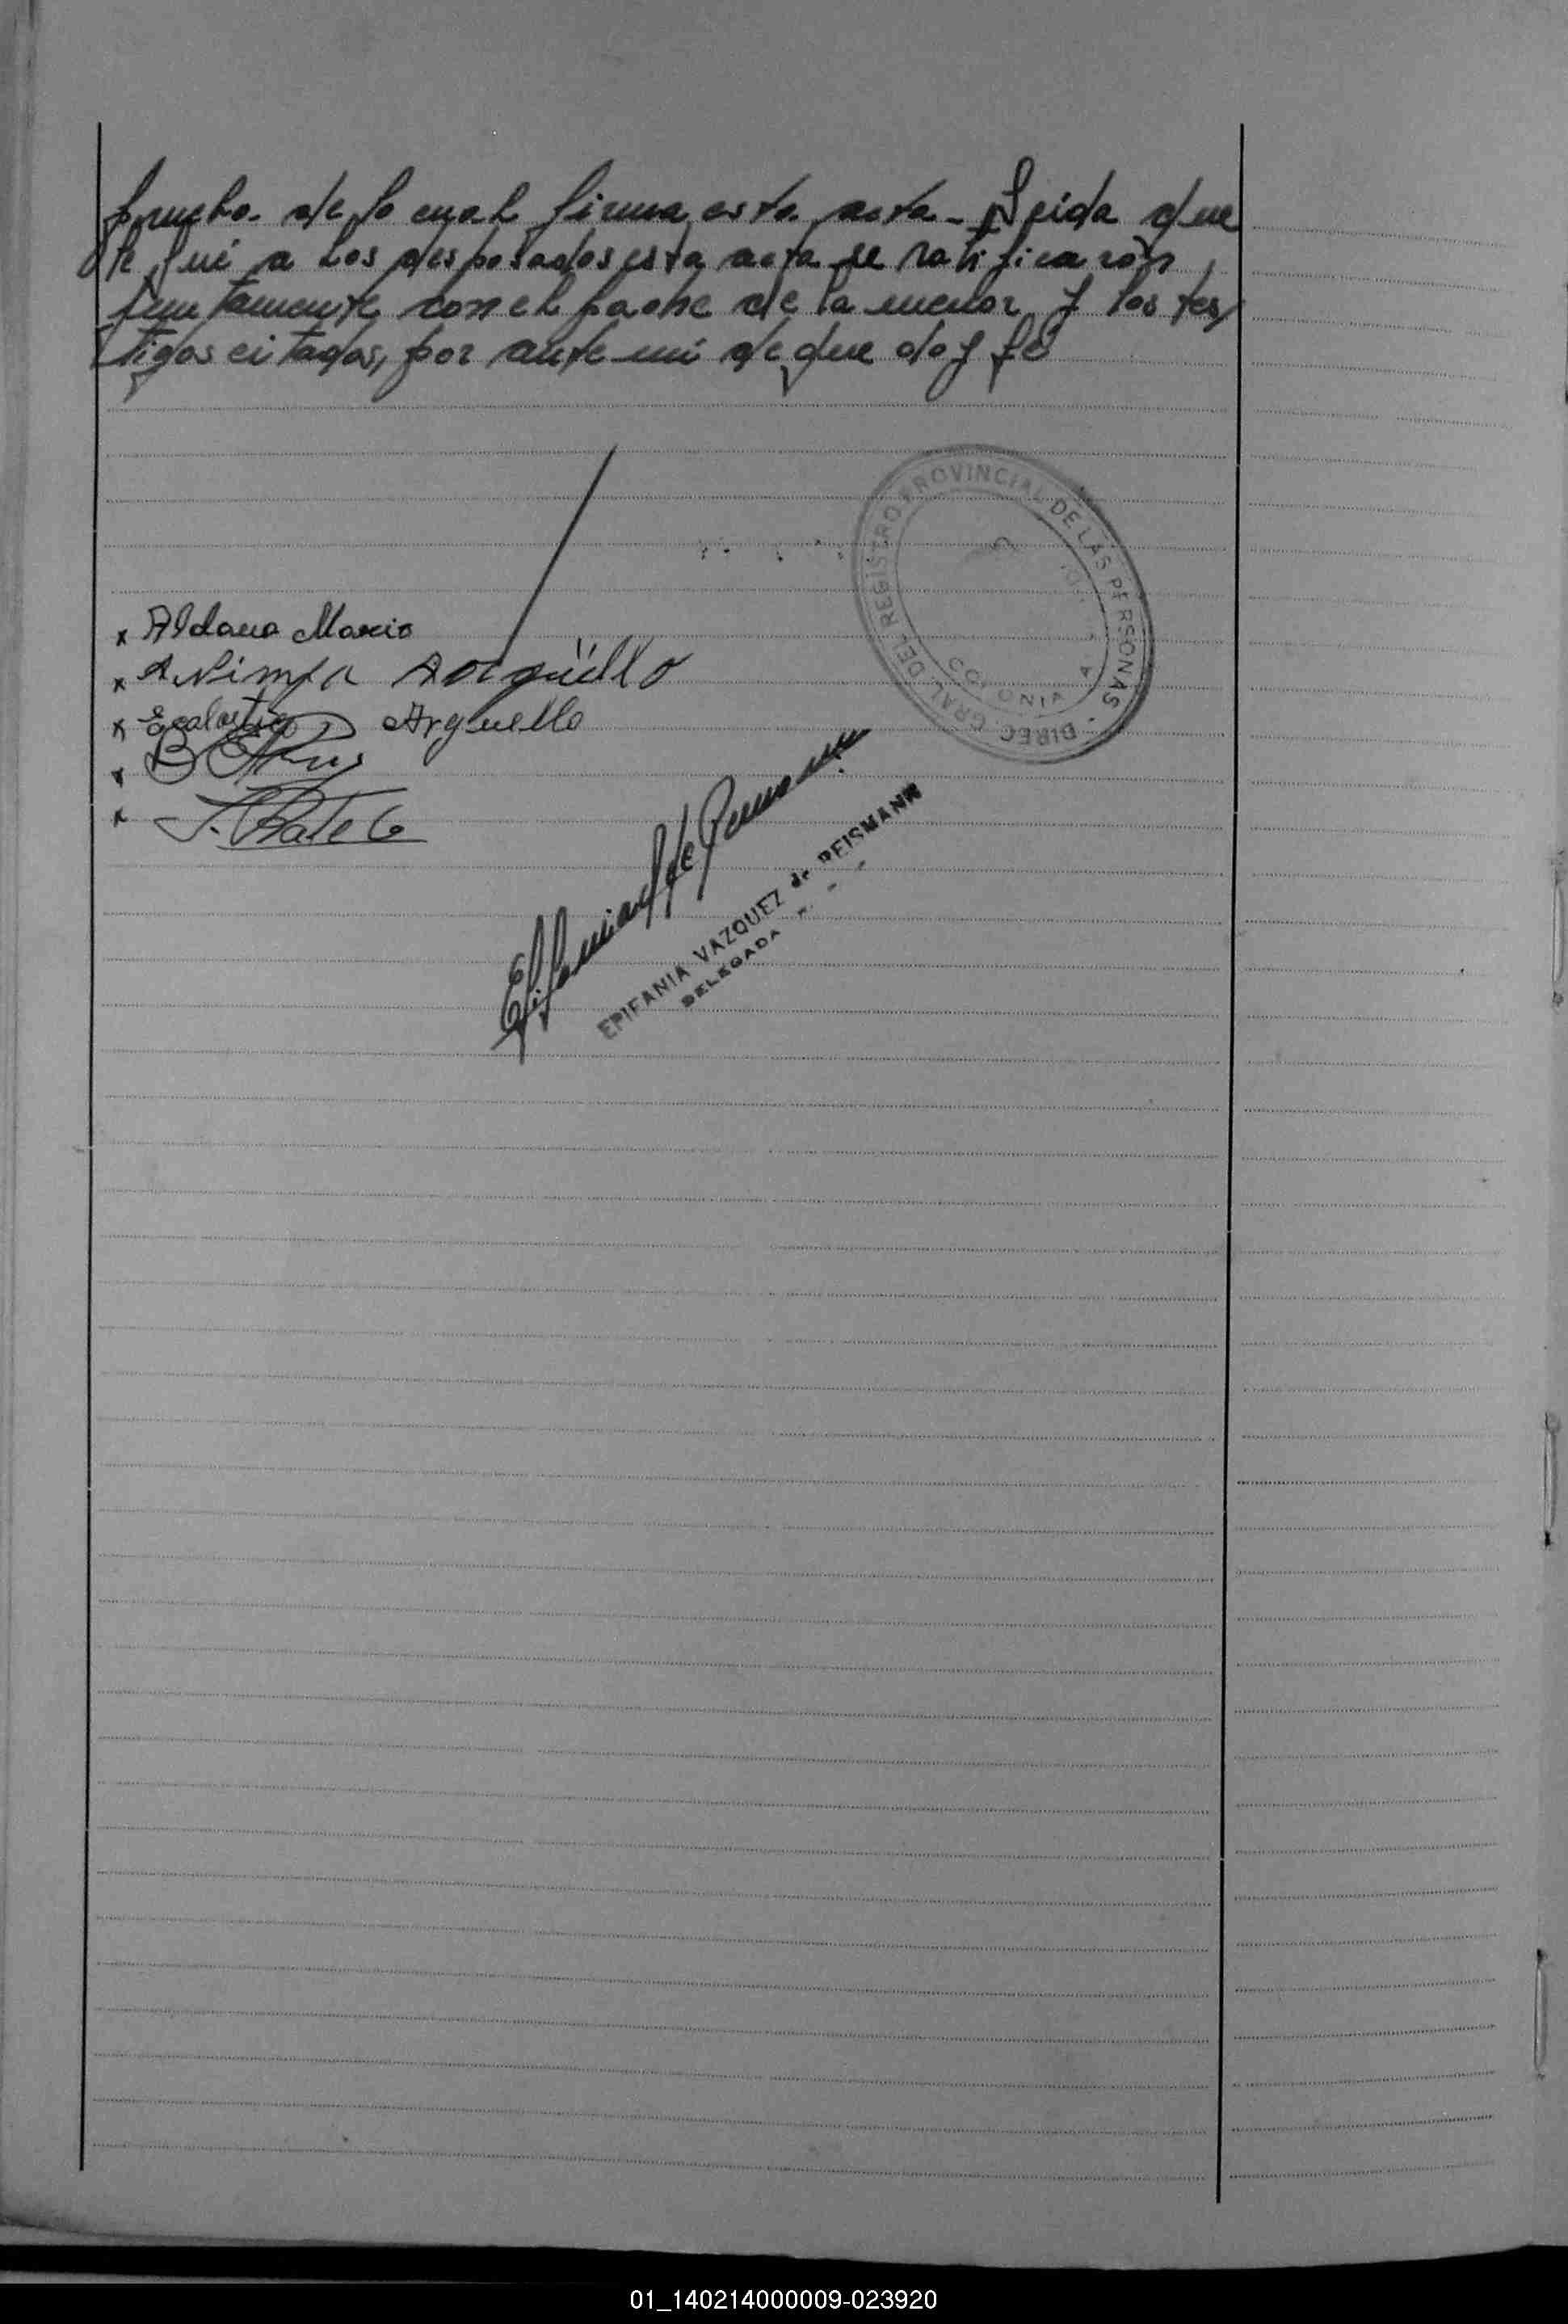 prueba de lo cual firma esta acta - Leida que
le fui a los desposados esta acta se ratificarón
juntamente con el padre de la menor y los tes
tigos citados, por ante mi de que doy fé
x Aldana Mario
x Ninfa Argüello
x Escolastico Arguello
x
x
DIREC. GRAL. DEL REGISTRO PROVINCIAL DE LAS PERSONAS
COLONIA
EPIFANIA VAZQUEZ de REISMANN
DELEGADA
01_140214000009-023920